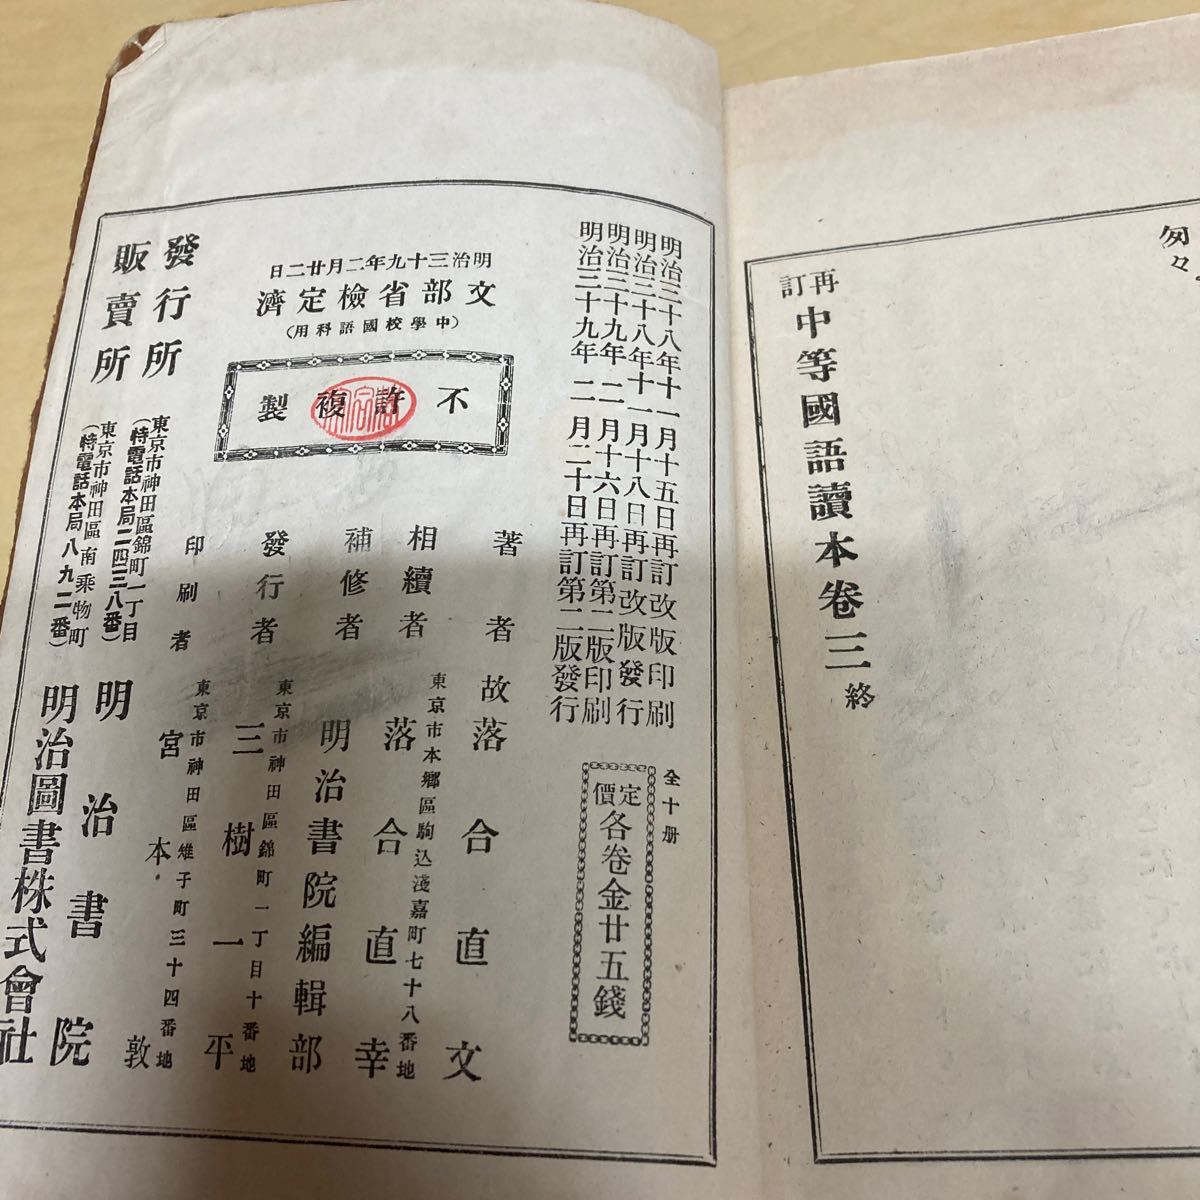 匆々
再訂中等國語讀本卷三終
明治三十八年十一月十五日再訂改版印刷
明治三十八年十一月十八日再訂改版發行
明治三十九年二月十六日再訂第二版印刷
明治三十九年二月二十日再訂第二版發行
全十册
定價各卷金廿五錢
明治三十九年二月廿二日
文部省檢定濟
(中學校國語科用)
不許複製
著者 故落合直文
東京市本鄉區駒込淺嘉町七十八番地
相續者 落合直幸
補修者 明治書院編輯部
東京市神田區錦町一丁目十番地
發行者 三樹一平
東京市神田區雉子町三十四番地
印刷者 宮本敦
發行所 東京市神田區錦町一丁目
(特電話本局二四三八番) 明治書院
販賣所 東京市神田區南乘物町
(特電話本局八九二番) 明治圖書株式會社